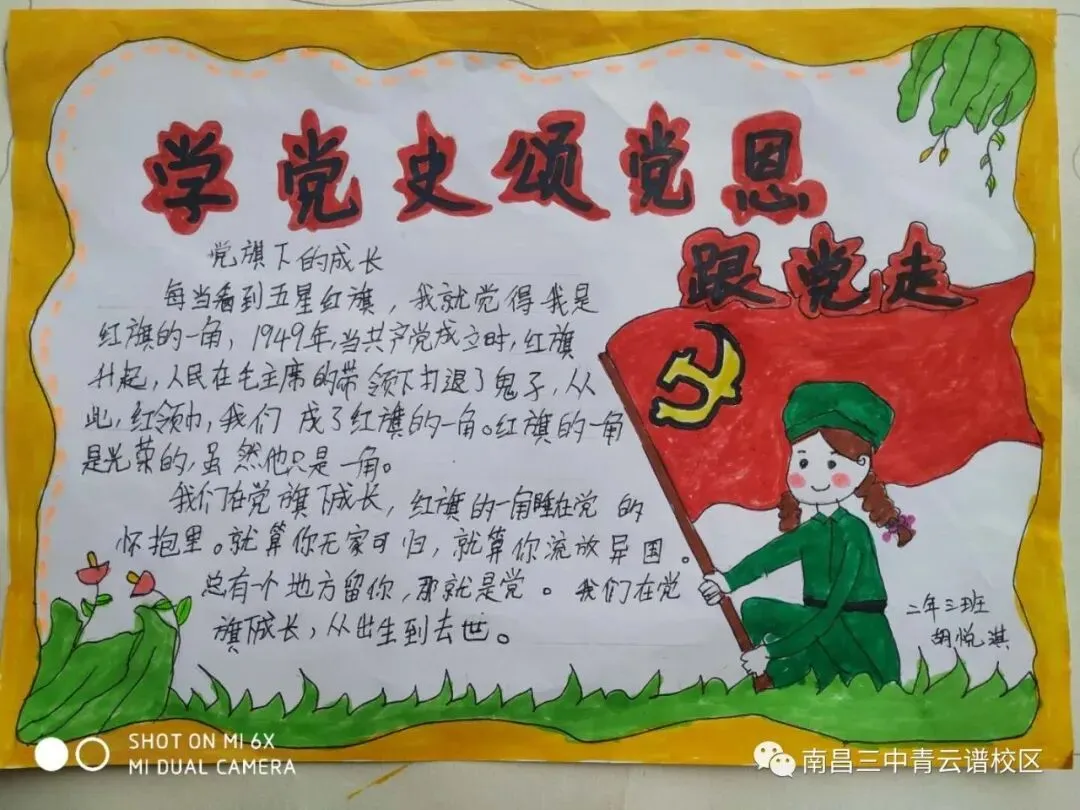 学党史颂党恩
跟党走
党旗下的成长
每当看到五星红旗，我就觉得我是
红旗的一角，1949年，当共产党成立时，红旗
升起，人民在毛主席的带领下打退了鬼子，从
此，红领巾，我们成了红旗的一角。红旗的一角
是光荣的，虽然他只是一角。
我们在党旗下成长，红旗的一角睡在党的
怀抱里。就算你无家可归，就算你流放异国。
总有一个地方留你，那就是党。我们在党
旗下成长，从出生到去世。
二年三班
胡悦淇
SHOT ON MI 6X
MI DUAL CAMERA
南昌三中青云谱校区